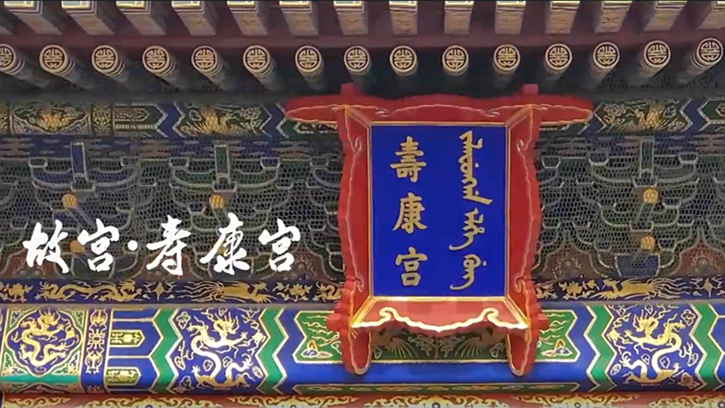 故宫·寿康宫
壽康宮